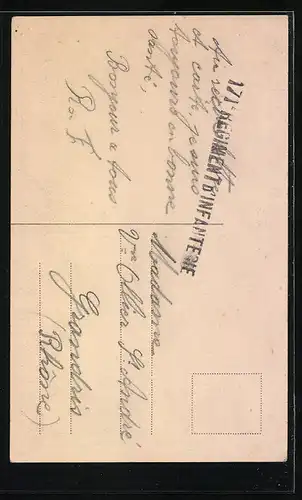 171e REGIMENT D'INFANTERIE
Au reçu de cette
carte, je suis
toujours en bonne
santé,
Bonjour à tous
Madame
Vve Ollier St André
Grandris
(Rhône)